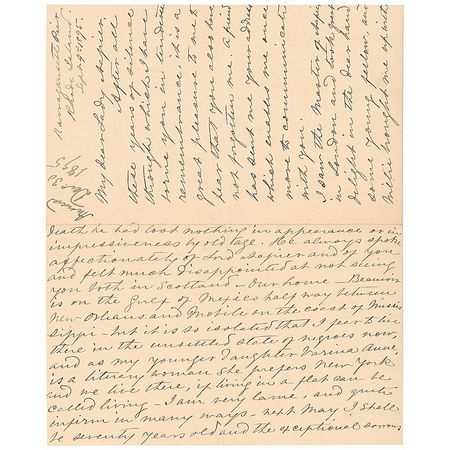 Narragansett Pier
Rhode Island
Sept 9th 1895.
My dear Lady Napier,
After all
these years of silence
through which I have
borne you in tender
remembrance, it is a
great pleasure to me to
hear that you also have
not forgotten me. A friend
has sent me your address
which enables me once
more to communicate
with you.
I saw the Master of Napier
in London and took great
delight in the dear hand
some young fellow, and
brought me up with
Dec 30
1895
death he had lost nothing in appearance or in
impressiveness by old age. He always spoke
affectionately of Lord Napier and of you
and felt much disappointed at not seeing
you both in Scotland - Our home - Beauvoir
is on the Gulf of Mexico half way between
New Orleans and Mobile on the coast of Missis
sippi - but it is so isolated that I fear to live
there in the unsettled state of negroes now,
and as my younger daughter Varina Anne,
is a literary woman she prefers New York
and we live there, if living in a flat can be
called living - I am very lame, and quite
infirm in many ways - next May I shall
be seventy years old and the exceptional sorrows